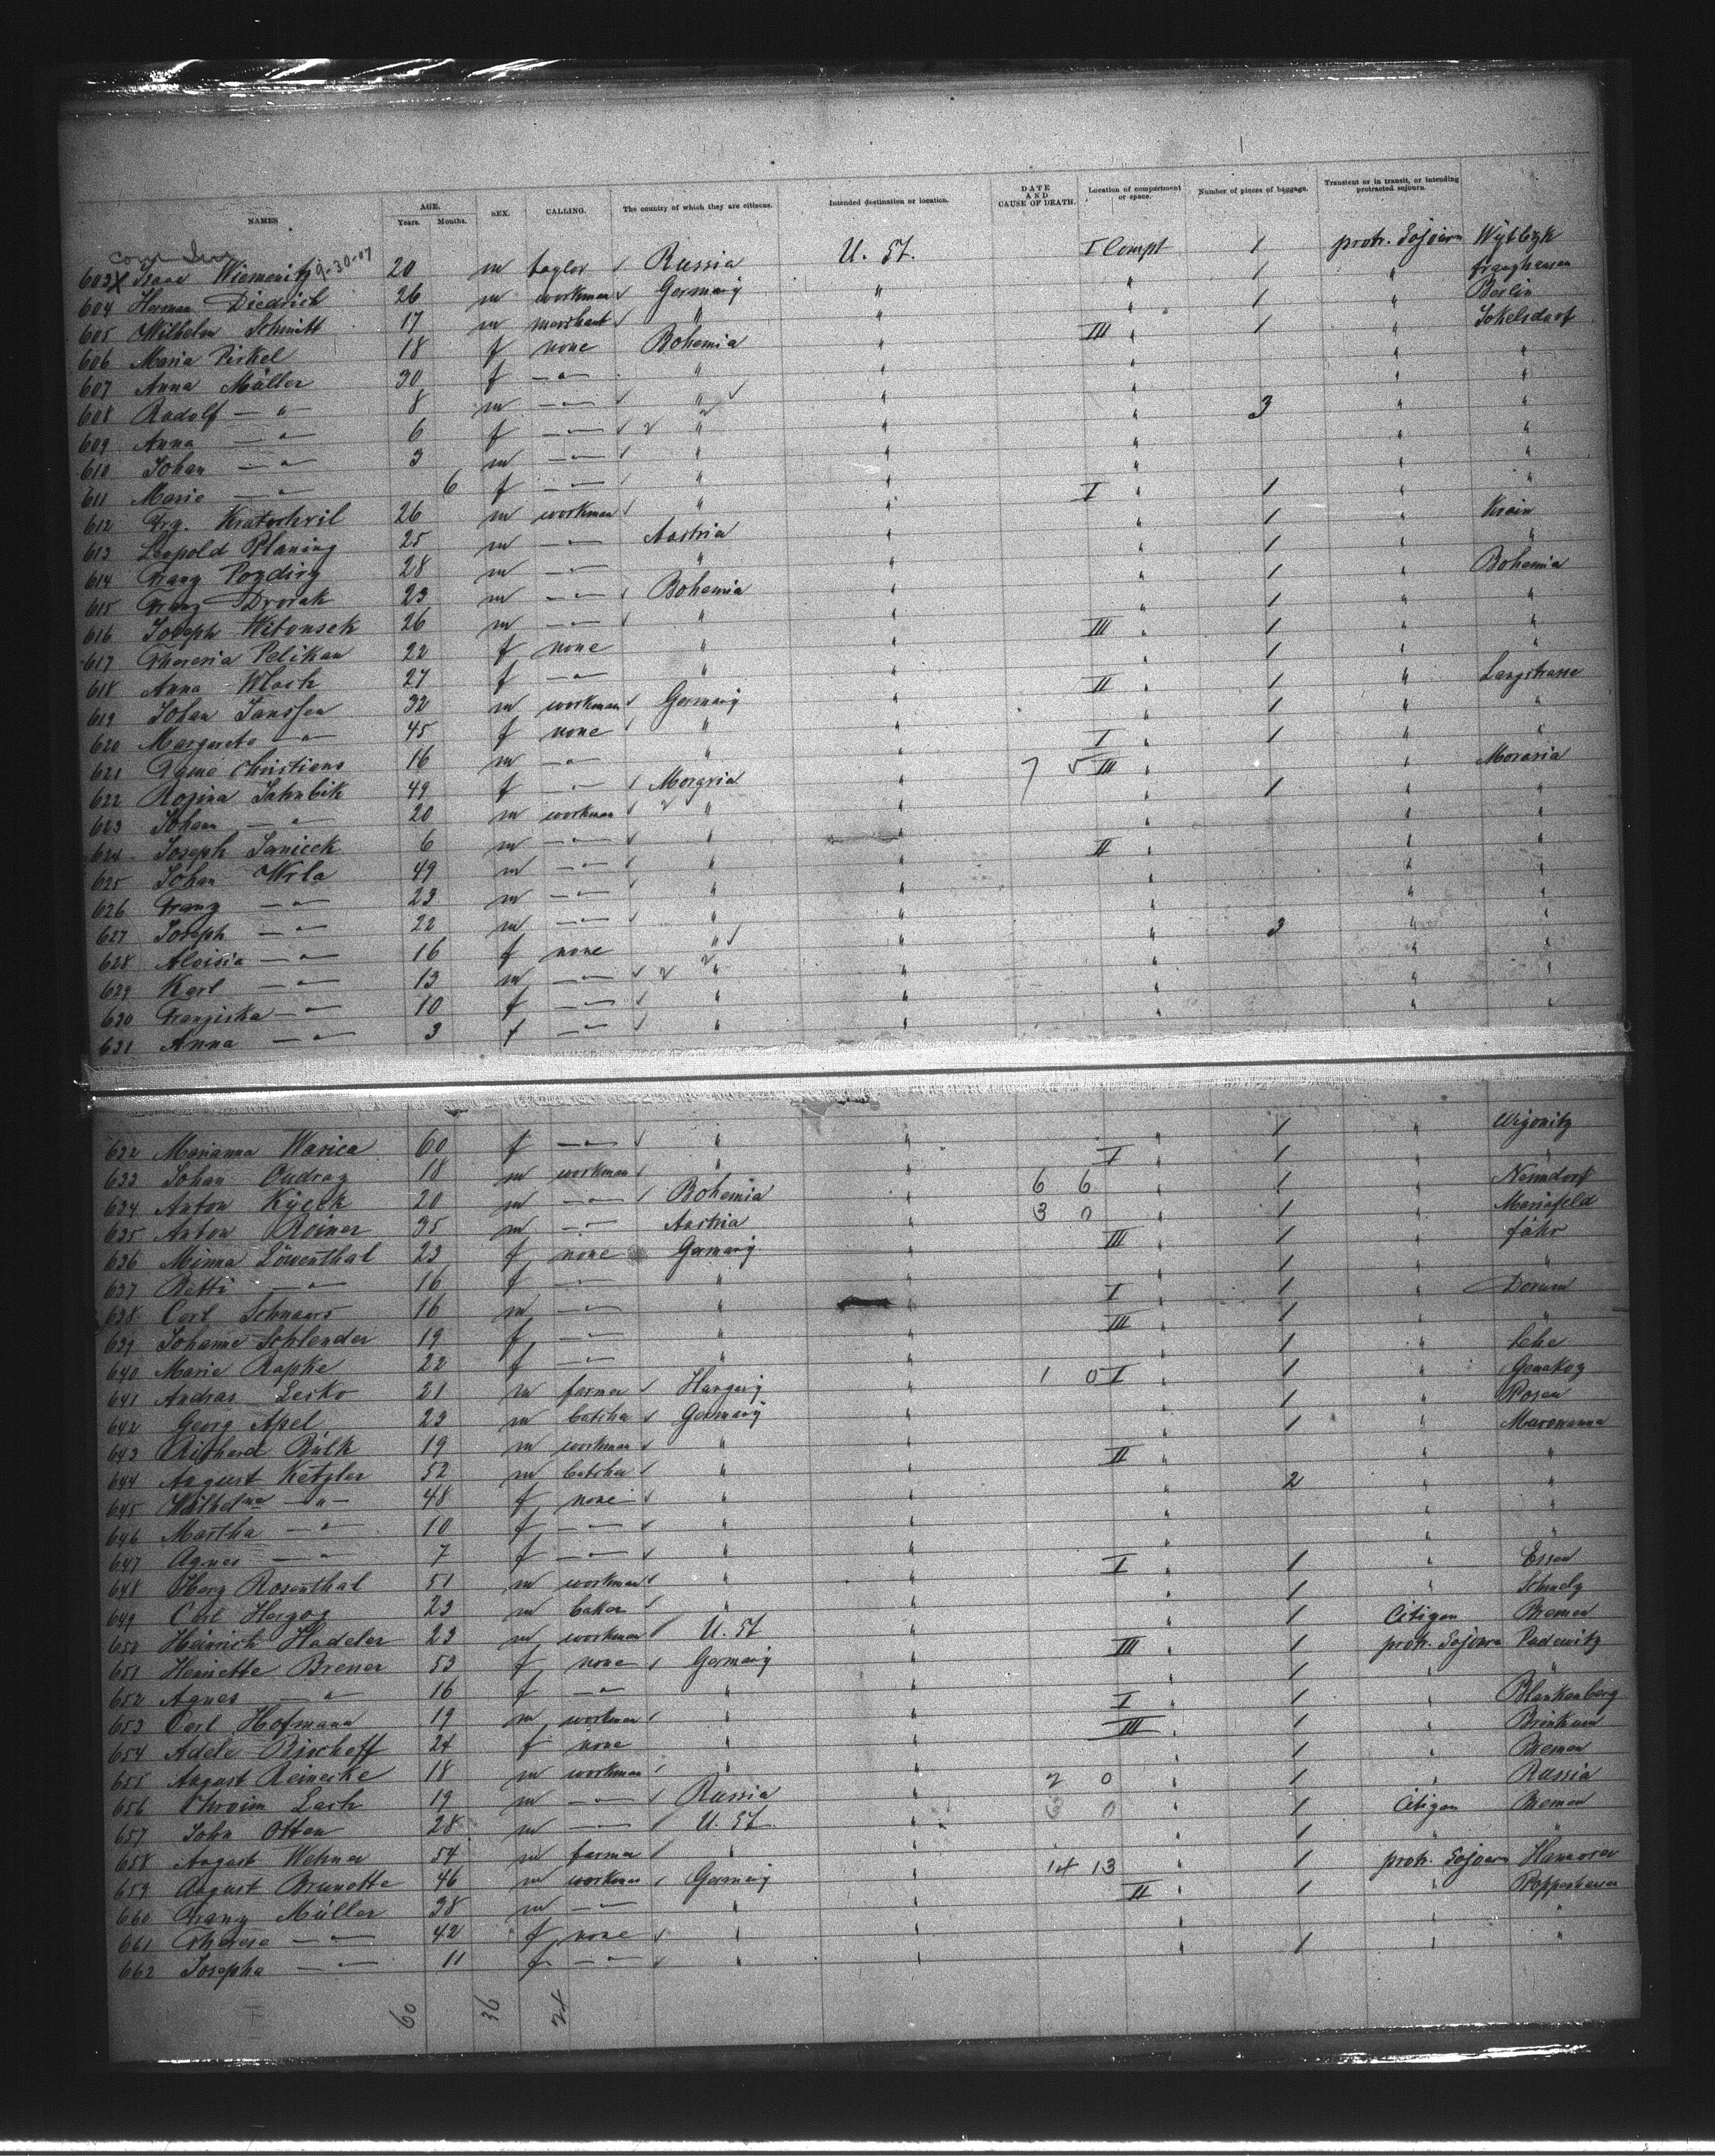 NAMES AGE. Years. Months. SEX. CALLING. The country of which they are citizens. Intended destination or location. DATE AND CAUSE OF DEATH. Location of compartment or space. Number of pieces of baggage. Transient or in transit, or intending protracted sojourn.
9-30-07
603 X Isaac Wiemenitz 20 m taylor Russia U. St. I Compt 1 protr. Sojourn
604 Herman Diedrich 26 m workman Germany " " 1 "
605 Wilhelm Schmitt 17 m merchant " " " 1 " Berlin
606 Maria Pirkel 18 f none Bohemia " III " 1 " Jokelsdorf
607 Anna Müller 30 f — " — " " " " "
608 Rudolf — " — 8 m — " — " " " 3 " "
609 Anna — " — 6 f — " — " " " " "
610 Johan — " — 3 m — " — " " " " "
611 Marie — " — 6 f — " — " " " " "
612 Frz. Kratochvil 26 m workman " " I " 1 " "
613 Leopold Planing 25 m — " — Austria " " 1 " Krain
614 Franz Pozdirz 28 m — " — " " " 1 " "
615 Franz Dvorak 23 m — " — Bohemia " " 1 " Bohemia
616 Joseph Witousek 26 m — " — " " " 1 " "
617 Theresia Pelikan 22 f none " " III " 1 " "
618 Anna Wlach 27 f — " — " " " 1 " "
619 Johan Janssen 32 m workman Germany " II " 1 " Langstrasse
620 Margareta — " — 45 f none " " " 1 " "
621 Christians 16 m — " — " " I " 1 " "
622 Rosina 49 f — " — Moravia " 7 5 III " " Moravia
623 Johann — " — 20 m workman " " " 1 " "
624 Joseph Janicek 6 m — " — " " " "
625 Johan Wrla 49 m — " — " " II " " "
626 Franz — " — 23 m — " — " " " " "
627 Joseph — " — 22 m — " — " " " " "
628 Aloisia — " — 16 f none " " " 3 " "
629 Karl — " — 13 m — " — " " " " "
630 Franziska — " — 10 f — " — " " " " "
631 Anna — " — 3 f — " — " " " " "
632 Marianna Warica 60 f — " — " " " 1 "
633 Johan 18 m workman " " I " 1 " "
634 Anton 20 m — " — Bohemia " 6 6 " 1 " Nenndorf
635 Anton Reiner 35 m — " — Austria " 3 0 " 1 " Mariafeld
636 Minna Löwenthal 23 f none Germany " III " 1 " föhr
637 Betti — " — 16 f — " — " " " 1 " "
638 Carl Schnaars 16 m — " — " " I " 1 " Dorum
639 Johanne Schlender 19 f — " — " " III " 1 " "
640 Marie Rapke 22 f — " — " " " 1 " Lehe
641 Andras Lesko 21 m farmer Hungary " 1 0 I " 1 "
642 Georg Apel 23 m butcher Germany " " 1 " Posen
643 Richard Bülk 19 m workman " " " 1 "
644 August Ketzler 52 m butcher " " II " " "
645 Wilhelme — " — 48 f none " " " 2 " "
646 Martha — " — 10 f — " — " " " " "
647 Agnes — " — 7 f — " — " " " " "
648 Herz Rosenthal 51 m workman " " I " 1 " Essen
649 Carl Herzog 23 m baker " " " 1 "
650 Heinrich Hadeler 23 m workman U. St " " 1 Citizen Bremen
651 Henriette Brener 53 f none Germany " III " 1 protr. Sojourn
652 Agnes — " — 16 f — " — " " " 1 " "
653 Carl Hofmann 19 m workman " " I " 1 " Blankenberg
654 Adele Bischoff 24 f none " " III " 1 " Brinkum
655 August Reinecke 18 m workman " " " 1 " Bremen
656 19 m — " — Russia " 2 0 " 1 " Russia
657 John Otten 28 m — " — U. St. " 3 0 " 1 Citizen Bremen
658 August Wehner 54 m farmer " " " 1 " "
659 August Brunotte 46 m workman Germany " 14 13 " 1 protr. Sojourn Hannover
660 Franz Müller 38 m — " — " " II " 1 " Poppenhausen
661 Therese — " — 42 f none " " " " "
662 Josepha — " — 11 f — " — " " " 1 " "
60 36 24